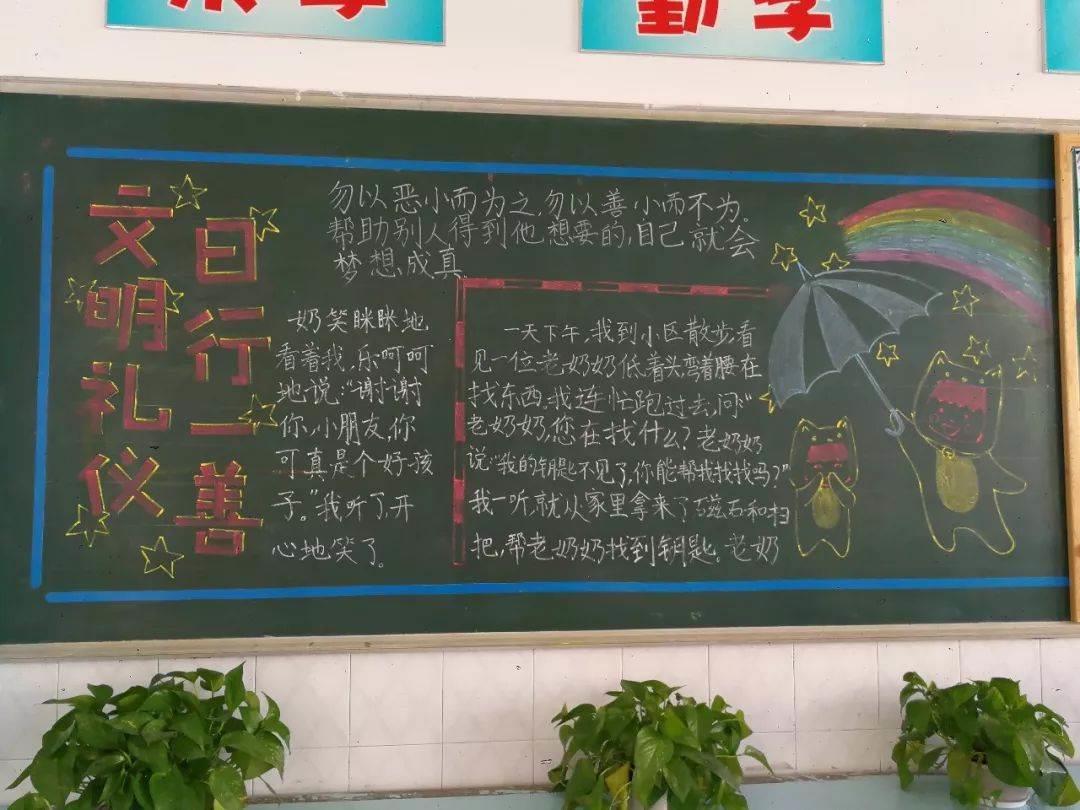 勤学
文明礼仪
日行一善
勿以恶小而为之,勿以善小而不为。
帮助别人得到他想要的,自己就会
梦想成真
一天下午,我到小区散步,看
见一位老奶奶低着头弯着腰在
找东西。我连忙跑过去,问:“
老奶奶,您在找什么?老奶奶
说:“我的钥匙不见了,你能帮我找找吗?”
我一听,就从家里拿来了吸磁石和扫
把,帮老奶奶找到钥匙。老奶
奶笑眯眯地
看着我,乐呵呵
地说:“谢谢
你,小朋友,你
可真是个好孩
子。”我听了,开
心地笑了。